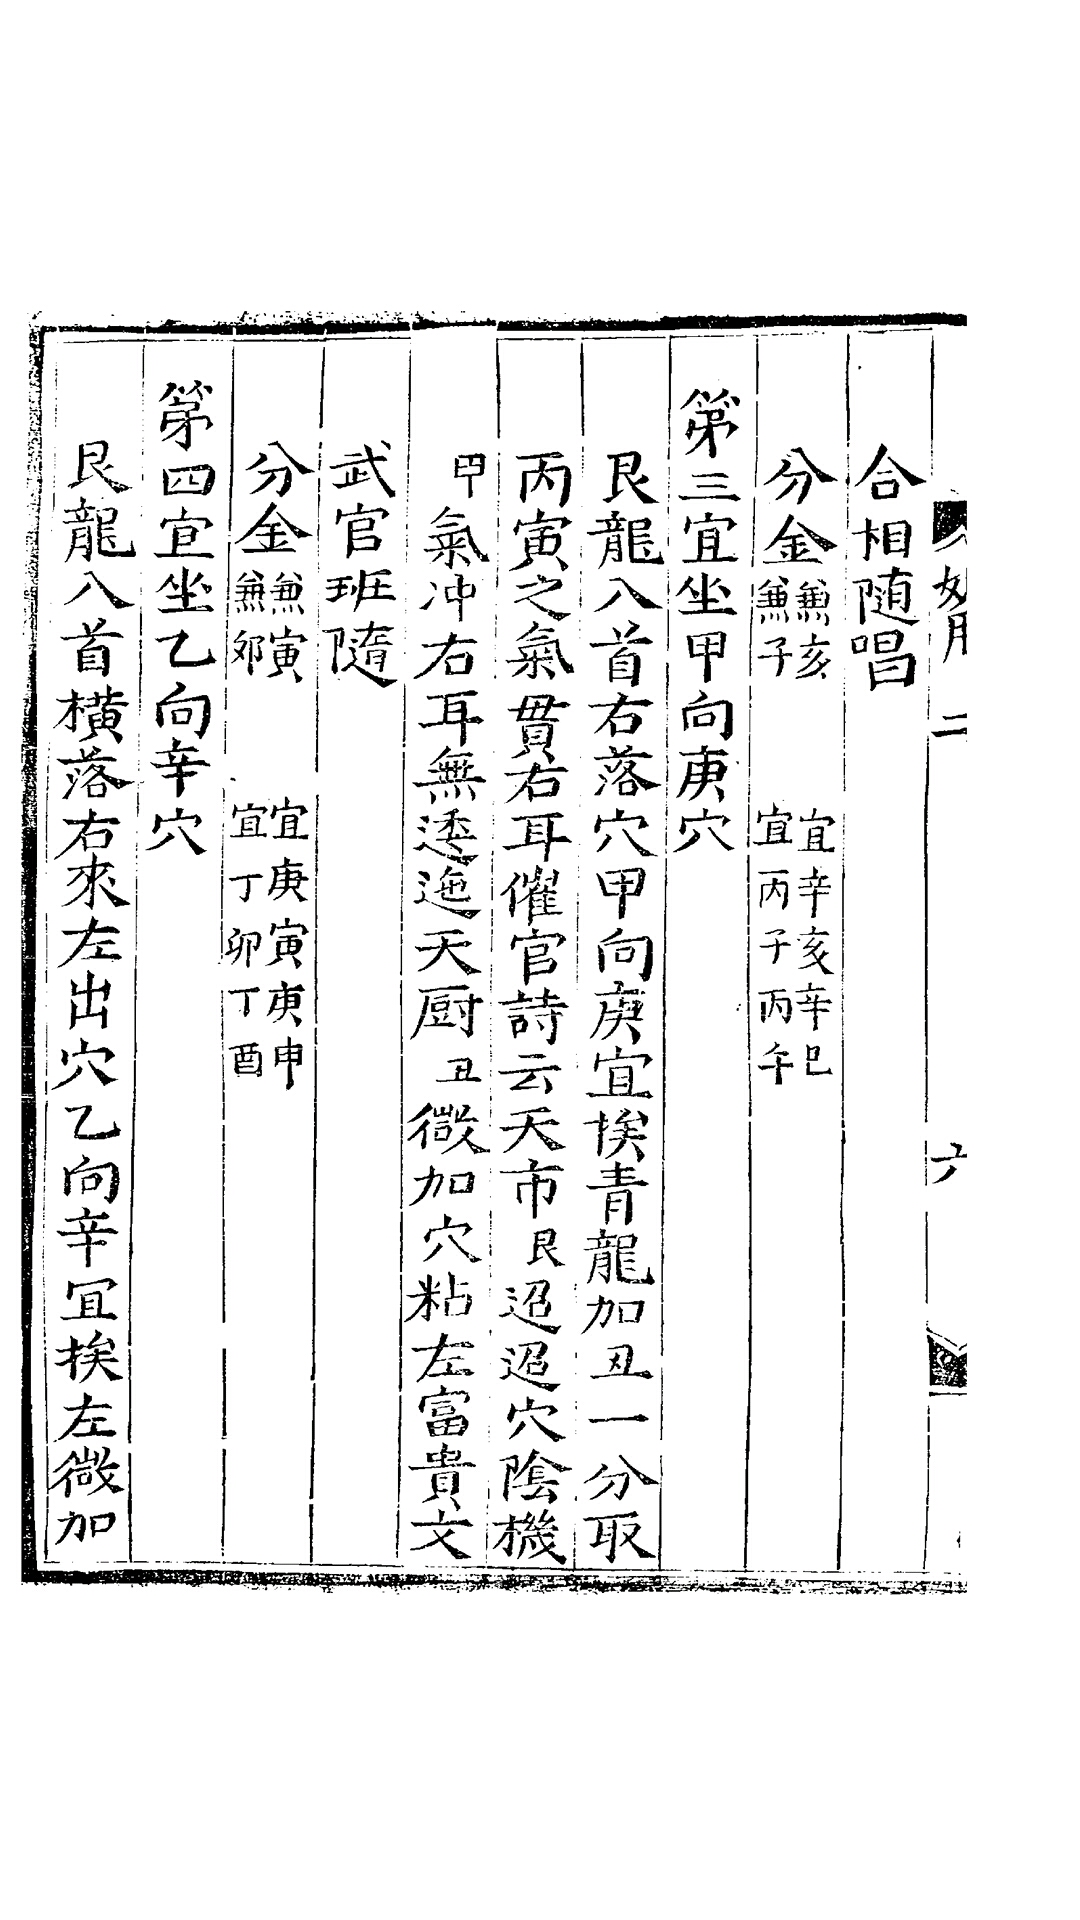 合相随唱
分金兼亥 宜辛亥辛巳
兼子 宜丙子丙午
第三宜坐甲向庚穴
艮龍八首右落穴甲向庚宜挨青龍加丑一分取
丙寅之氣貫右耳催官詩云天市艮迢迢穴陰機
甲氣冲右耳無逶迤天厨丑微加穴粘左富貴文
武官班隨
分金兼寅 宜庚寅庚申
兼卯 宜丁卯丁酉
第四宜坐乙向辛穴
艮龍八首橫落右來左出穴乙向辛宜挨左微加
二
六